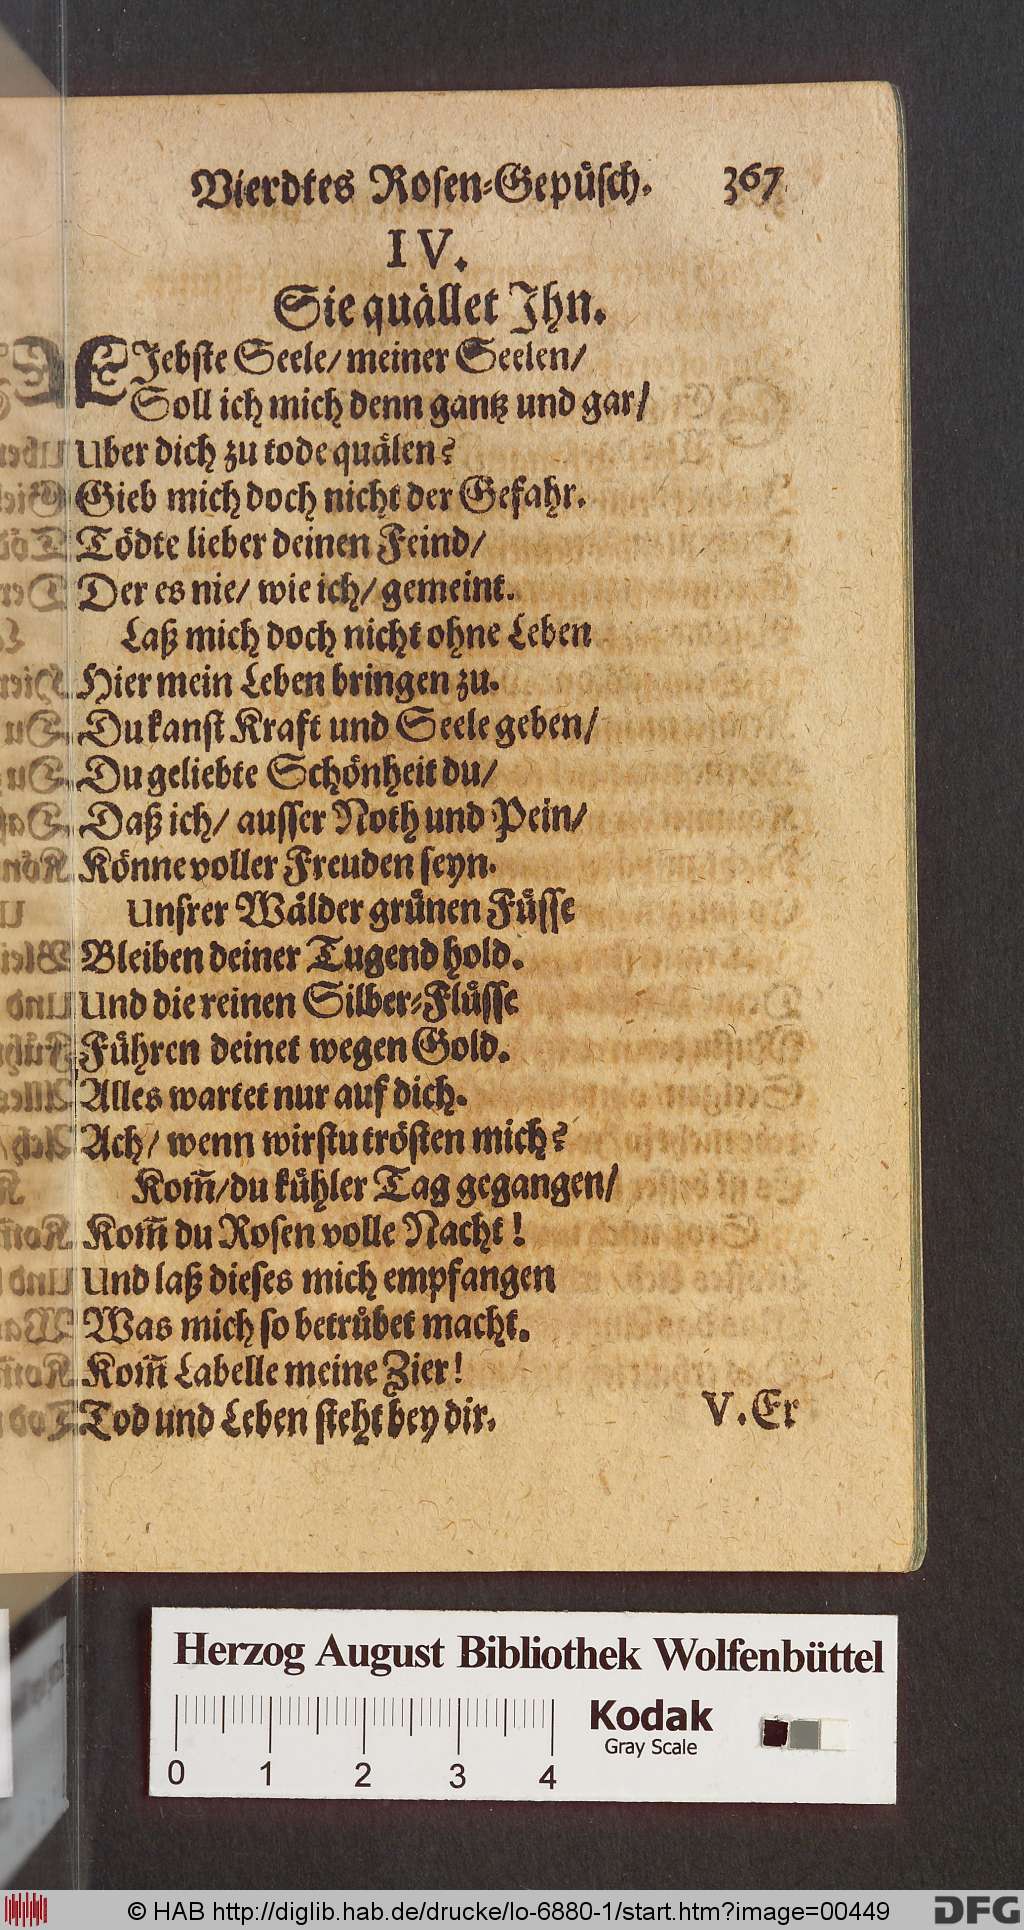 Vierdtes Rosen-Gepuͤsch. 367
IV.
Sie quaͤllet Ihn.
LIebste Seele/ meiner Seelen/
Soll ich mich denn gantz und gar/
Uber dich zu tode quaͤlen?
Gieb mich doch nicht der Gefahr.
Toͤdte lieber deinen Feind/
Der es nie/ wie ich/ gemeint.
Laß mich doch nicht ohne Leben
Hier mein Leben bringen zu.
Du kanst Kraft und Seele geben/
Du geliebte Schoͤnheit du/
Daß ich/ ausser Noth und Pein/
Koͤnne voller Freuden seyn.
Unsrer Waͤlder gruͤnen Fuͤsse
Bleiben deiner Tugend hold.
Und die reinen Silber-Fluͤsse
Fuͤhren deinet wegen Gold.
Alles wartet nur auf dich.
Ach/ wenn wirstu troͤsten mich?
Kom̃/ du kuͤhler Tag gegangen/
Kom̃ du Rosen volle Nacht!
Und laß dieses mich empfangen
Was mich so betruͤbet macht.
Kom̃ Labelle meine Zier!
Tod und Leben steht bey dir.
V. Er
Herzog August Bibliothek Wolfenbüttel
Kodak
Gray Scale
0 1 2 3 4
© HAB http://diglib.hab.de/drucke/lo-6880-1/start.htm?image=00449
DFG